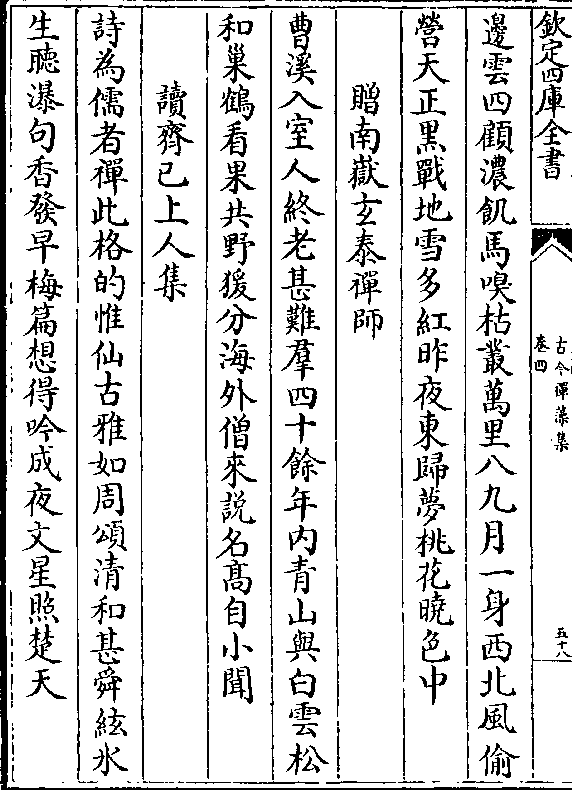 欽定四庫全書
古今禪藻集
卷四
五十八
邊雲四顧濃飢馬嗅枯叢萬里八九月一身西北風偷
營天正黑戰地雪多紅昨夜東歸夢桃花曉色中
贈南嶽玄泰禪師
曹溪入室人終老甚難羣四十餘年內青山與白雲松
和巢鶴看果共野猨分海外僧來説名髙自小聞
讀齊已上人集
詩為儒者禪此格的惟仙古雅如周頌清和甚舜絃氷
生聽瀑句香發早梅篇想得吟成夜文星照楚天